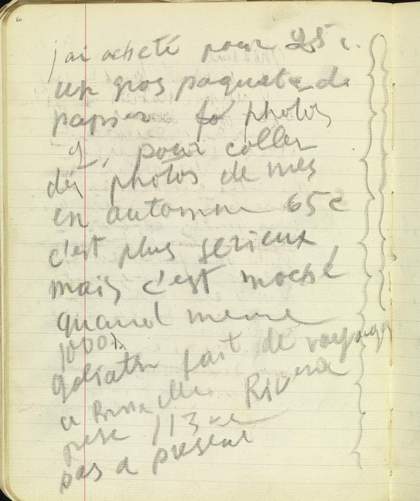 j'ai acheté pour 25 c.
un gros paquet de
papier fo photos
2, pour coller
des photos de mes
en automne 65 c
c'est plus serieux,
mais c'est moche
quand meme
goliath fait de voyage
a Bruxelles Riviera
pese 113
pas a present